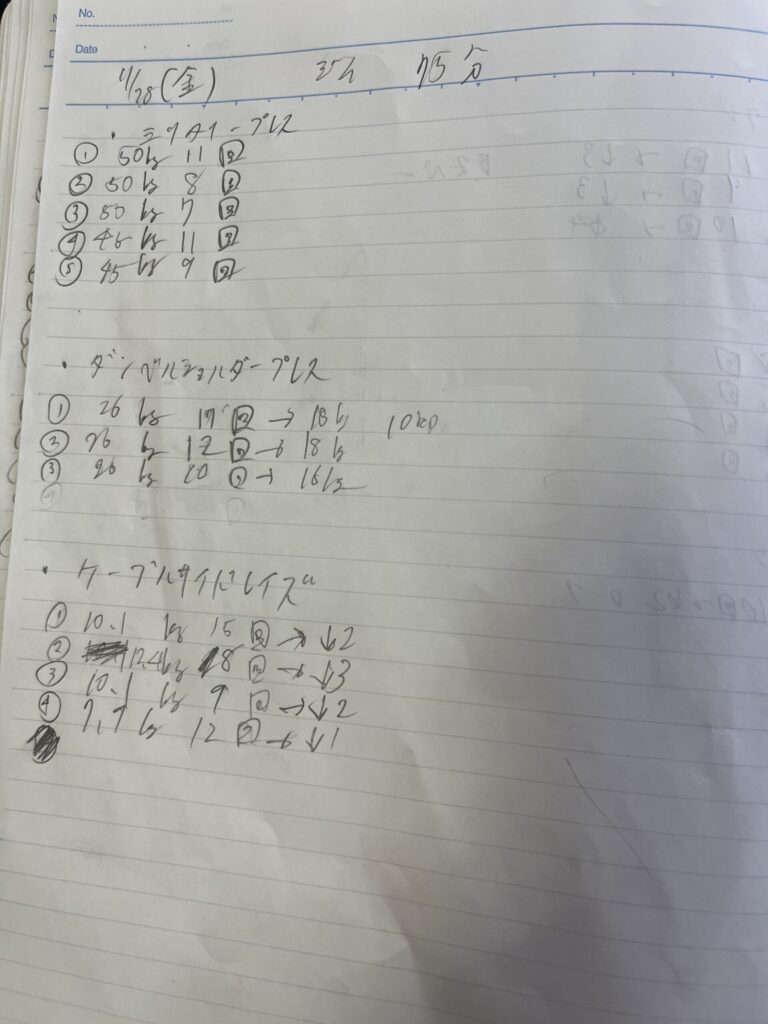 No.
Date
11/28(金) ヨシ 75分
・ミリタリープレス
① 50kg 11回
② 50kg 8回
③ 50kg 7回
④ 45kg 11回
⑤ 45kg 9回
・ダンベルショルダープレス
① 26kg 17回→18kg
② 26kg 12回→18kg
③ 26kg 10回→16kg
・ケーブルサイドレイズ
① 10.1kg 15回→↓2
② 12.4kg 8回→↓3
③ 10.1kg 9回→↓2
④ 7.7kg 12回→↓1